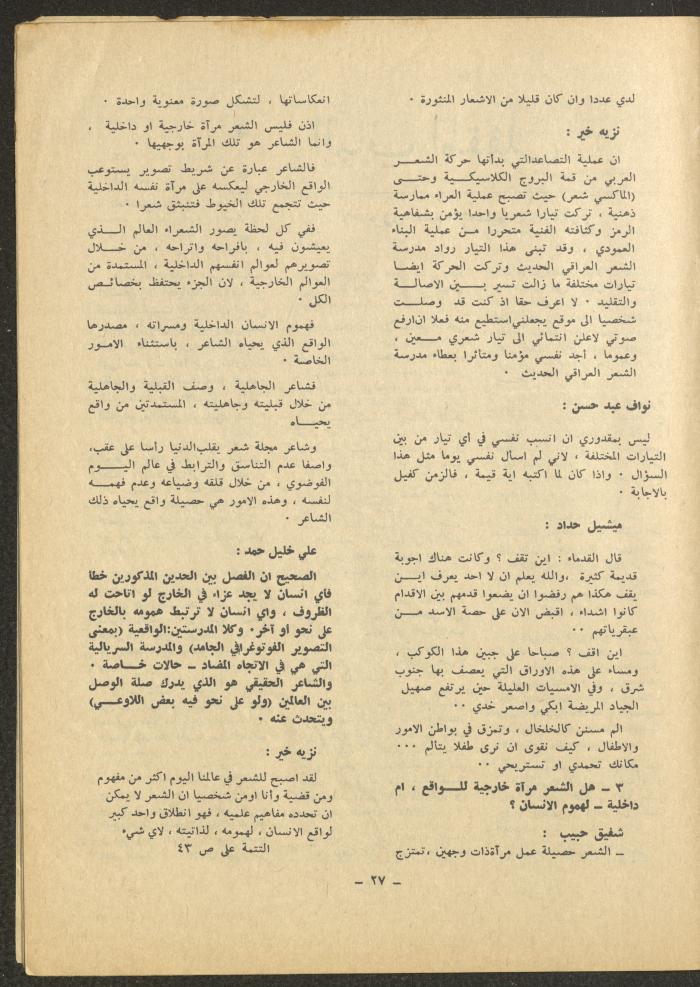 لدي عددا وان كان قليلا من الاشعار المنثورة ٠
نزيه خير :
ان عملية التصاعدالتي بدأتها حركة الشعـر
العربي من قمة البروج الكلاسيكـية وحتى
(الماكسي شعر) حيث تصبح عملية العراء ممارسة
ذهنية ، تركت تيارا شعريا واحدا يؤمن بشفاهية
الرمز وكثافته الفنية متحررا من عملية البناء
العمودي ، وقد تبنى هذا التيار رواد مدرسة
الشعر العراقي الحديث وتركت الحركة ايضا
تيارات مختلفة ما زالت تسير بـين الاصالـة
والتقليد ٠ لا اعرف حقا اذ كنت قد وصلـت
شخصيا الى موقع يجعلني استطيع منه فعلا ان ارفع
صوتي لاعلن انتمائي الى تيار شعري معـين ،
وعموما ، أجد نفسي مؤمنا ومتأثرا بعطاء مدرسة
الشعر العراقي الحديث ٠
نواف عبد حسن :
ليس بمقدوري ان انسب نفسي في أي تيار من بين
التيارات المختلفة ، لاني لم اسأل نفسي يوما مثل هذا
السؤال ٠ واذا كان لما اكتبه اية قيمة ، فالزمن كفيل
بالاجابة ٠
ميشيل حداد :
قال القدماء : اين تقف ؟ وكانت هناك اجوبة
قديمة كثيرة ،والله يعلم ان لا احد يعرف ايـن
يقف هكذا هم رفضوا ان يضعوا قدمهم بين الاقدام
كانوا اشداء ، اقبض الان على حصة الاسد مـن
عبقرياتهم ٠٠
اين اقف ؟ صباحا على جبين هذا الكوكب ،
ومساء على هذه الاوراق التي يعصف بها جنوب
شرق ، وفي الامسيات العليلة حين يرتفع صهيل
الجياد المريضة ابكي واصعر خدي ٠٠
الم مسنن كالخلخال ، وتمزق في بواطن الامور
والاطفال ، كيف نقوى ان نرى طفلا يتألم ٠٠٠
مكانك تحمدي او تستريحي ٠٠
٣ ــ هل الشعر مرآة خارجية للـواقع ، ام
داخلية ــ لهموم الانسان ؟
شفيق حبيب :
ــ الشعر حصيلة عمل مرآةذات وجهين ،تمتزج
انعكاساتها ، لتشكل صورة معنوية واحدة ٠
اذن فليس الشعر مرآة خارجية او داخلية ،
وانما الشاعر هو تلك المرآة بوجهيها ٠
فالشاعر عبارة عن شريط تصوير يستوعب
الواقع الخارجي ليعكسه على مرآة نفسه الداخلية
حيث تتجمع تلك الخيوط فتنبثق شعرا ٠
ففي كل لحظة يصور الشعراء العالم الـذي
يعيشون فيه ، بافراحه واتراحه ، من خـلال
تصويرهم لعوالم انفسهم الداخلية ، المستمدة من
العوالم الخارجية ، لان الجزء يحتفظ بخصائـص
الكل ٠
فهموم الانسان الداخلية ومسراته ، مصدرها
الواقع الذي يحياه الشاعر ، باستثناء الامـور
الخاصة ٠
فشاعر الجاهلية ، وصف القبلية والجاهلية
من خلال قبليته وجاهليته ، المستمدتين من واقع
يحيـاه
وشاعر مجلة شعر يقلب الدنيا رأسا على عقب،
واصفا عدم التناسق والترابط في عالم اليـوم
الفوضوي ، من خلال قلقه وضياعه وعدم فهمـه
لنفسه ، وهذه الامور هي حصيلة واقع يحياه ذلك
الشاعر ٠
علي خليل حمد :
الصحيح ان الفصل بين الحدين المذكورين خطا
فاي انسان لا يجد عزاء في الخارج لو اتاحت له
الظروف ، واي انسان لا ترتبط همومه بالخارج
على نحو او آخر٠ وكلا المدرستين:الواقعية (بمعنى
التصوير الفوتوغرافي الجامد) والمدرسة السريالية
التي هي في الاتجاه المضاد ــ حالات خـاصة ٠
والشاعر الحقيقي هو الذي يدرك صلة الوصل
بين العالمين (ولو على نحو فيه بعض اللاوعـي)
ويتحدث عنه ٠
نزيه خير :
لقد اصبح للشعر في عالمنا اليوم اكثر من مفهوم
ومن قضية وأنا اومن شخصيا ان الشعر لا يمكن
ان تحدده مفاهيم علميه ، فهو انطلاق واحد كبير
لواقع الانسان ، لهمومه ، لذاتيته ، لاي شيء
التتمة على ص ٤٣
ــ ٢٧ ــ